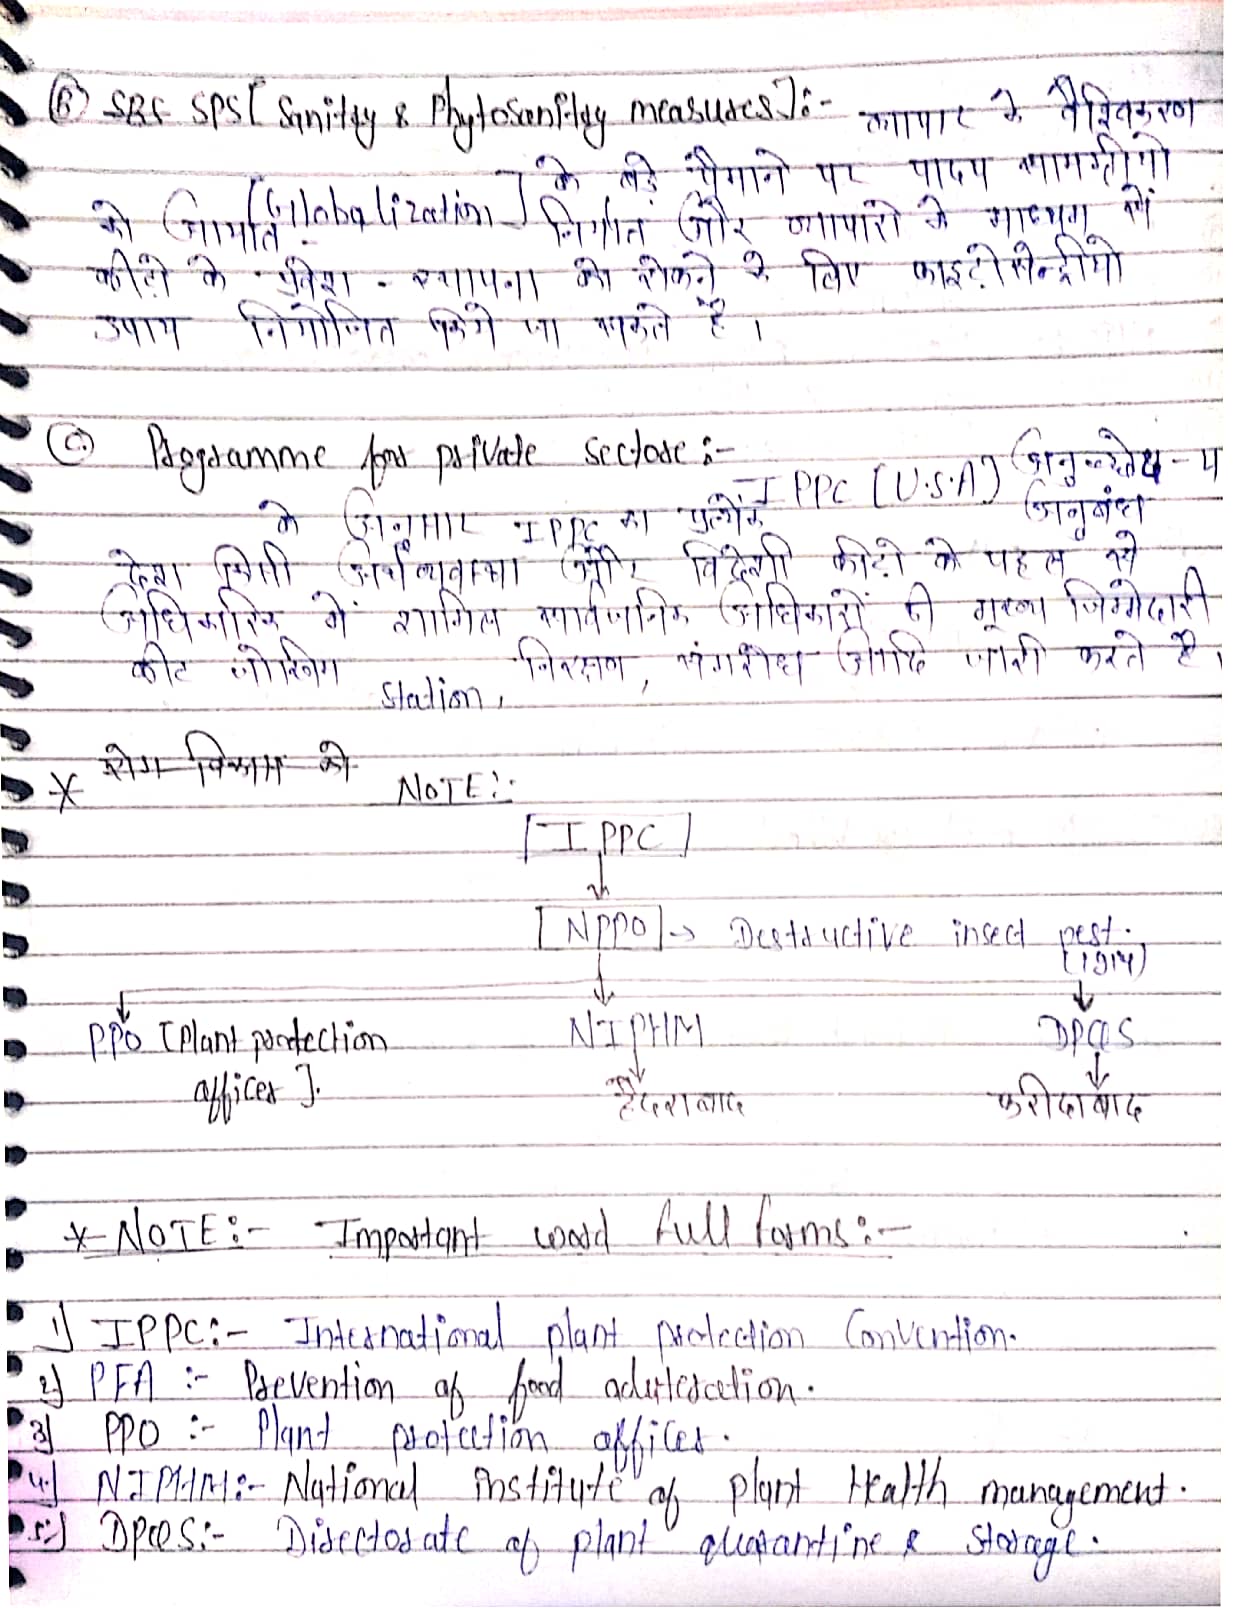 (B) SPS [Sanitary & Phytosanitary measures]:- व्यापार के वैश्विकरण
[Globalization] के बड़े पैमाने पर पादप सामग्रीयो
को आयात - निर्यात और व्यापारो के माध्यम से
कीटो के प्रवेश - स्थापना को रोकने के लिए फाइटोसेन्ट्रीयो
उपाय नियोजित किये जा सकते है।
(C) Programme for private sectore:-
IPPC (U.S.A) अनुच्छेद - 4
के अनुसार IPPC का प्रत्येक अनुबंध
देश किसी अर्थव्यवस्था और विदेशी कीटो के पहल से
अधिकारिक में शामिल सार्वजनिक अधिकारों की मुख्य जिम्मेदारी
कीट जोखिम station, निरक्षण, संगरोध आदि जारी करते है।
* रोग विकास को
NOTE:-
[IPPC]
[NPPO] → Destructive insect pest.
(1914)
PPO [Plant protection
officer].
NIPHM
DPQS
हैदराबाद
फरीदाबाद
* NOTE:- Important word full forms:-
1) IPPC:- International plant protection Convention.
2) PFA :- Prevention of food adulteration.
3) PPO :- Plant protection officer.
4.) NIPHM:- National institute of plant Health management.
5:) DPQS:- Directorate of plant quarantine & storage.